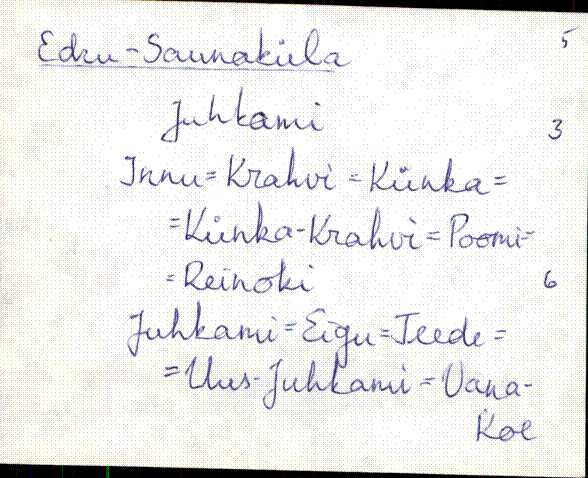 Edru-Saunaküla 5
Juhkami 3
Innu=Krahvi=Künka=
=Künka-Krahvi=Poomi=
=Reinoki 6
Juhkami=Eigu=Teede=
=Uus-Juhkami=Vana-
Koe